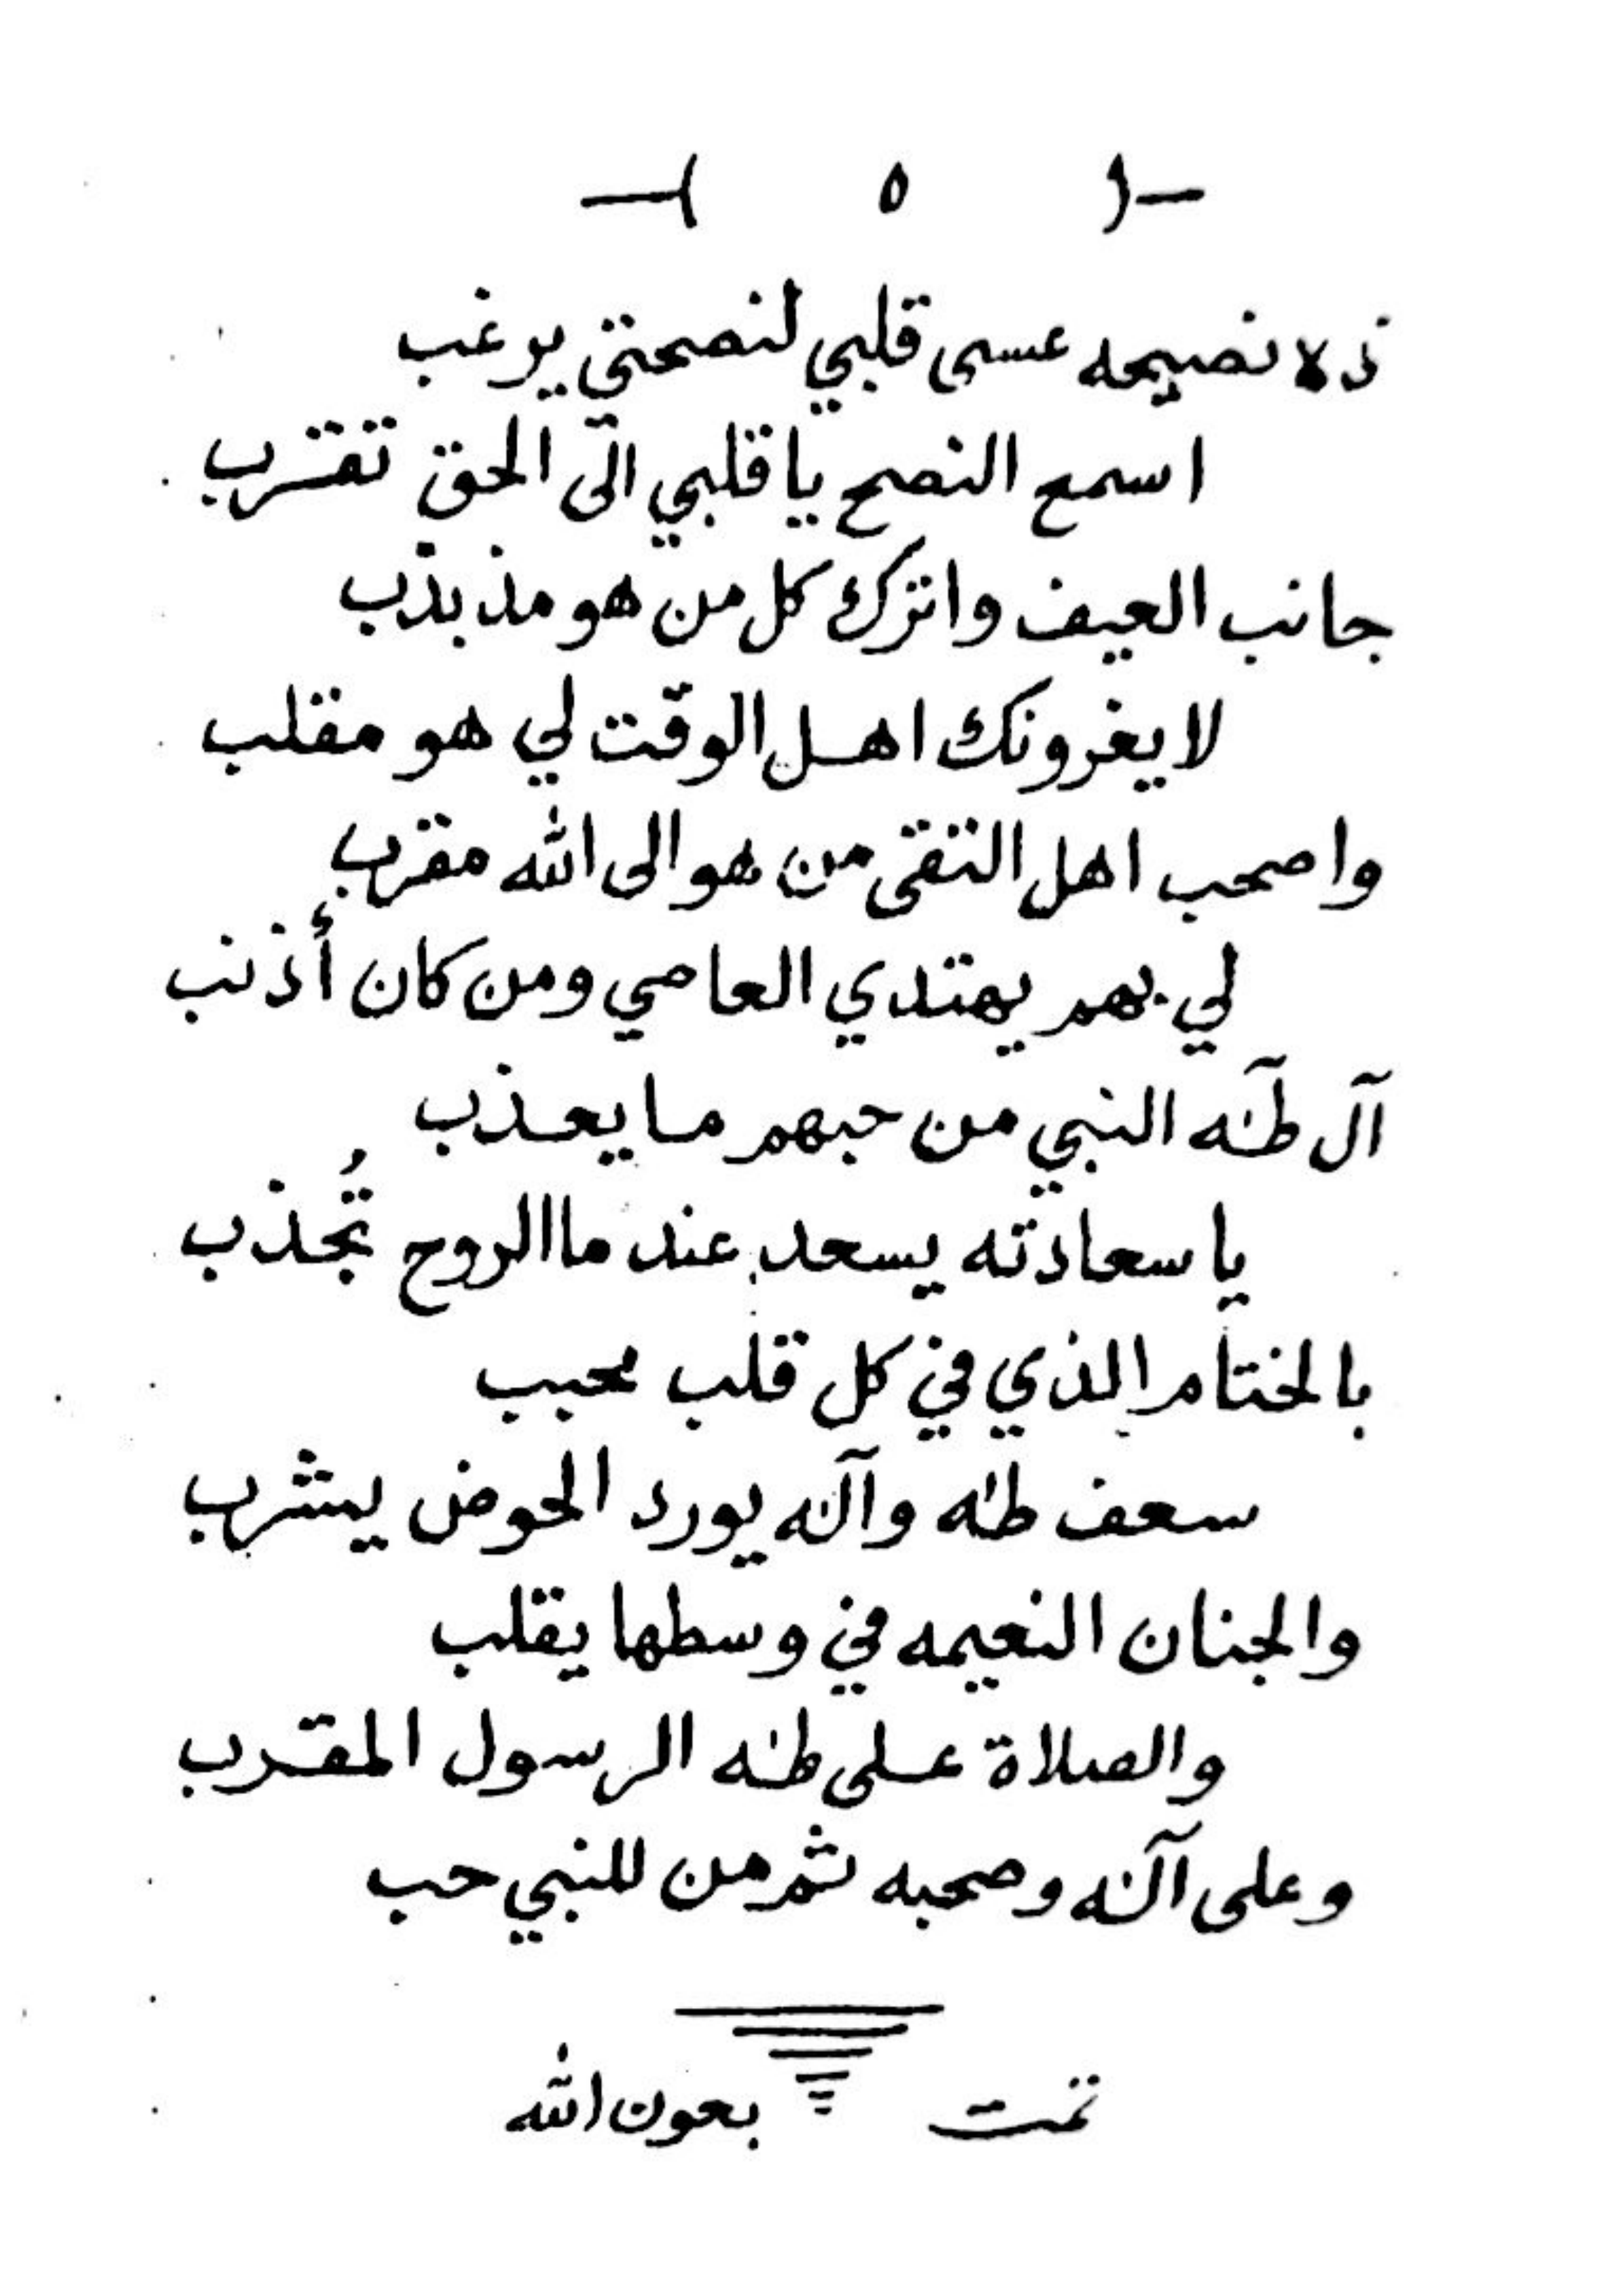 -( ٥ )-
ذه نصيحه عسى قلبي لنصحتي يرغب
اسمع النصح يا قلبي الى الحق تقترب
جانب العيف واترك كل من هو مذبذب
لا يغرونك اهل الوقت لي هو مقلب
واصحب اهل التقى من هو الى الله مقرب
لي بهم يهتدي العاصي ومن كان أذنب
آل طٰه النبي من حبهم ما يعذب
يا سعادته يسعد عند ما الروح تُجذب
بالختام الذي في كل قلب محبب
سعف طٰه وآله يورد الحوض يشرب
والجنان النعيمه في وسطها يقلب
والصلاة على طٰه الرسول المقرب
وعلى آله وصحبه ثم من للنبي حب
تمت بعون الله